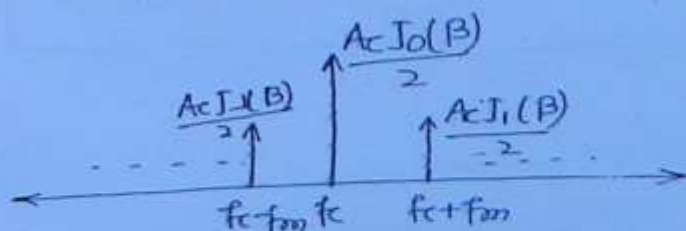 AcJ0(β)
2
AcJ-1(β)
2
AcJ1(β)
2
fc-fm fc fc+fm